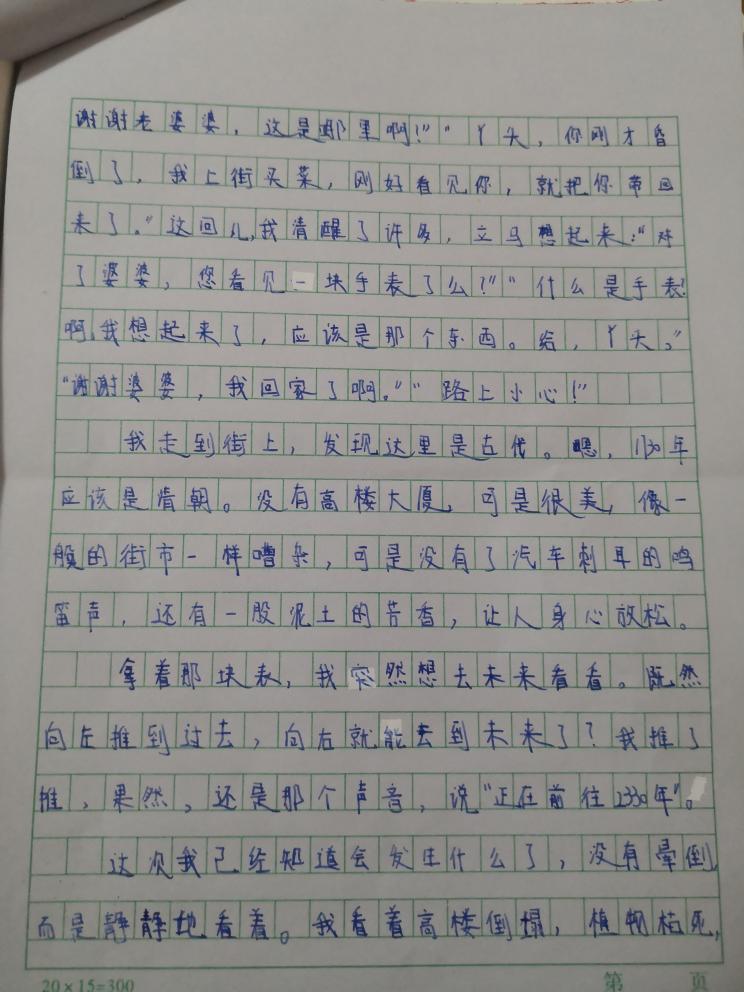 谢谢老婆婆，这是哪里啊！”“丫头，你刚才昏
倒了，我上街买菜，刚好看见你，就把你带回
来了。”这回儿，我清醒了许多，立马想起来：“对
了婆婆，您看见一块手表了么？”“什么是手表？
啊，我想起来了，应该是那个东西。给，丫头。”
“谢谢婆婆，我回家了啊。”“路上小心！”
我走到街上，发现这里是古代。嗯，1730年
应该是清朝。没有高楼大厦，可是很美，像一
般的街市一样嘈杂，可是没有了汽车刺耳的鸣
笛声，还有一股泥土的芳香，让人身心放松。
拿着那块表，我突然想去未来看看。既然
向左推到过去，向右就能去到未来了？我推了
推，果然，还是那个声音，说“正在前往2330年”。
这次我已经知道会发生什么了，没有晕倒，
而是静静地看着。我看着高楼倒塌，植物枯死，
20×15=300
第 页